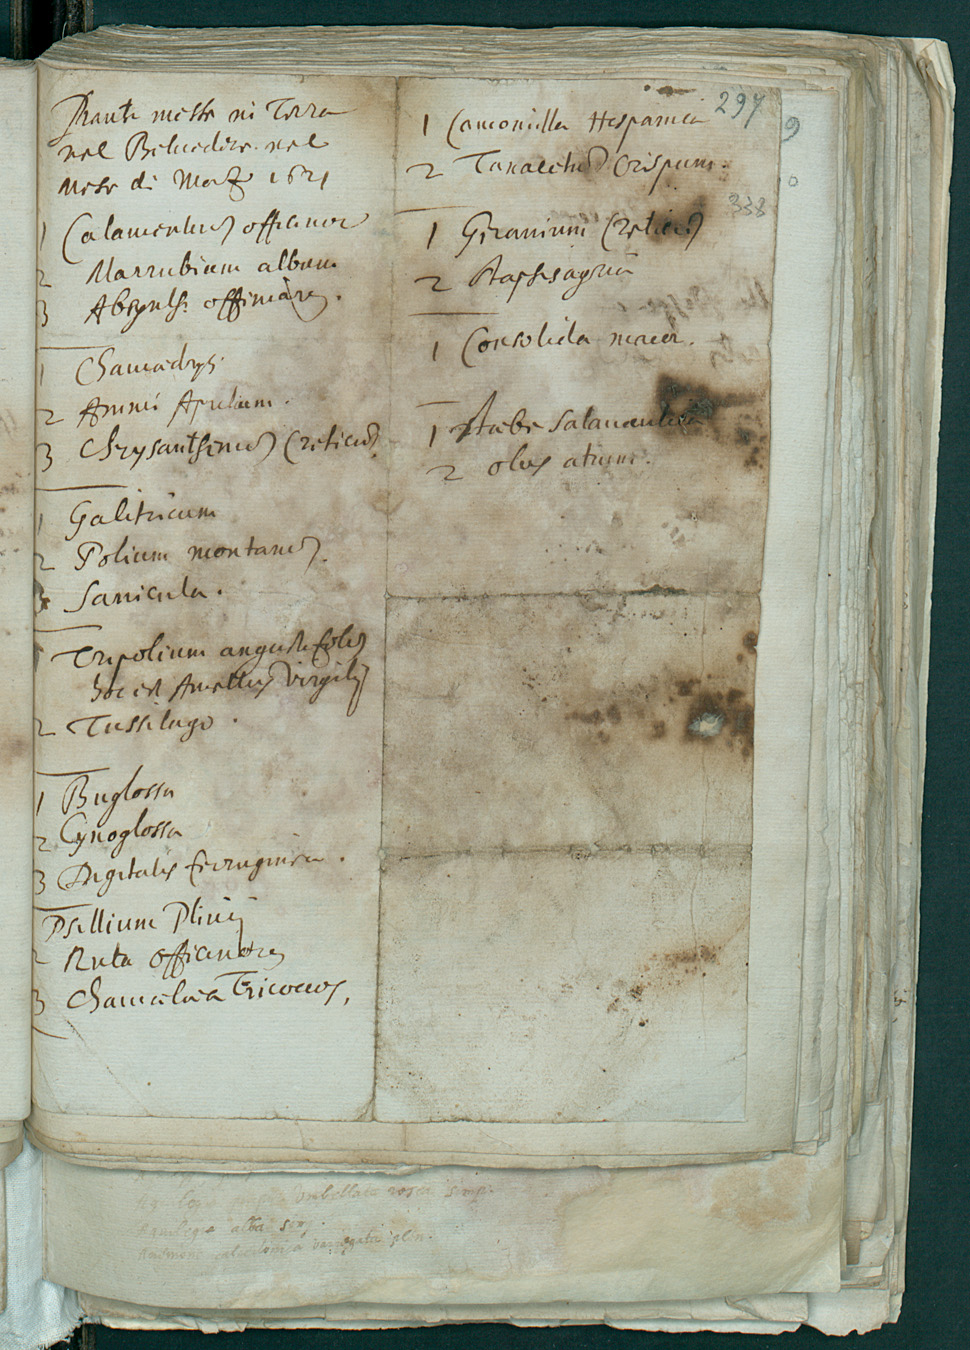 Piante messe in Terra
nel Beluedere nel
mese di Marzo 1621
1 Calamentum officinar
2 Marrubium album
3 Absynth: officinar.
1 Chamadrys
2 Ammi Apulum.
3 Chrysanthemum Creticum
1 Galitricum
2 Polium montanum.
3 Sanicula.
1 Tripolium angustifolium
hoc est Amellus Virgilij
2 Tussilago.
1 Buglossa
2 Cynoglossa
3 Digitalis ferruginea.
Psillium Plinij
2 Ruta officinar
3 Chamelaea Tricoccos,
297
9
1 Camomilla Hispanica
2 Tanacetum crispum.
338
1 Geranium Creticum
2 Stafisagria
1 Consolida maior.
1 Stœbe Salamantica
2 olus atrum.
umbellata rosea simp.
Aquilegia alba simp.
Anemone calcedonica variegata plen.